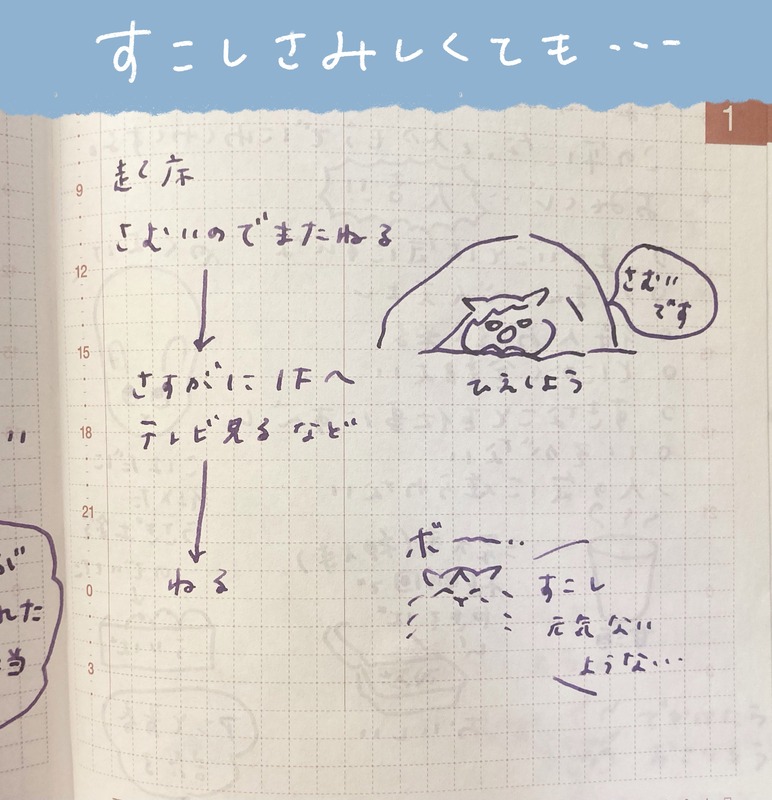 すこしさみしくても・・・
1
9
起く床
さむいのでまたねる
12
さむい
です
15
ひえしょう
さすがに1Fへ
テレビ見るなど
18
21
ボー・・
ねる
0
すこし
元気ない
ような・・・
3
れた
当